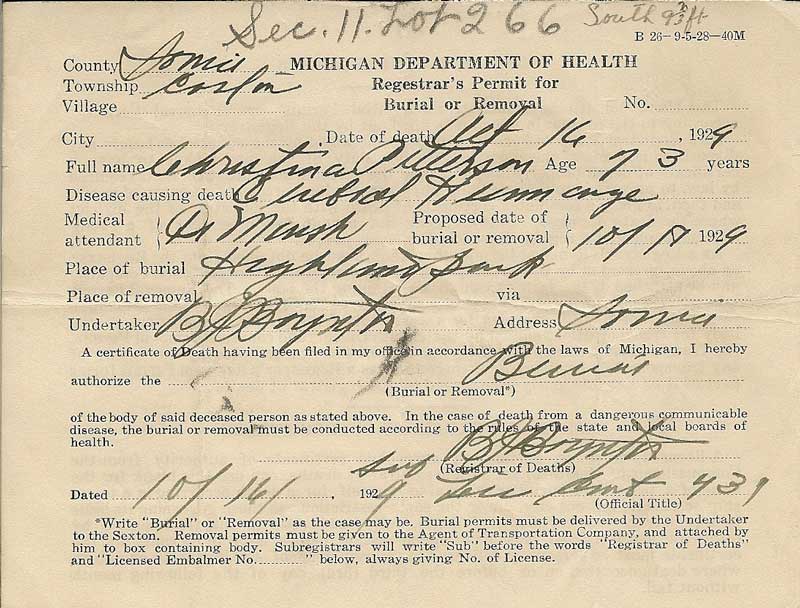 Sec. 11. Lot 266 South 9 2/3 ft
B 26—9-5-28—40M
County Ionia MICHIGAN DEPARTMENT OF HEALTH
Township Easton Regestrar's Permit for
Village Burial or Removal No.
City Date of death Oct 16, 1929
Full name Christina Peterson Age 73 years
Disease causing death Cerebral Hemmorage
Medical attendant Dr Marsh Proposed date of burial or removal 10/18 1929
Place of burial Highland Park
Place of removal via
Undertaker B J Boynton Address Ionia
A certificate of Death having been filed in my office in accordance with the laws of Michigan, I hereby
authorize the Burial
(Burial or Removal*)
of the body of said deceased person as stated above. In the case of death from a dangerous communicable
disease, the burial or removal must be conducted according to the rules of the state and local boards of
health.
B J Boynton
Sub (Registrar of Deaths)
Dated 10/16/, 1929 Lic Emb 439
(Official Title)
*Write "Burial" or "Removal" as the case may be. Burial permits must be delivered by the Undertaker
to the Sexton. Removal permits must be given to the Agent of Transportation Company, and attached by
him to box containing body. Subregistrars will write "Sub" before the words "Registrar of Deaths"
and "Licensed Embalmer No.........." below, always giving No. of License.